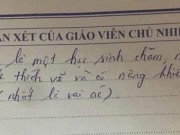 ẬN XÉT CỦA GIÁO VIÊN CHỦ NHI
là một học sinh chăm,
thích vẽ và có năng khiế
( nhất là vai ác)